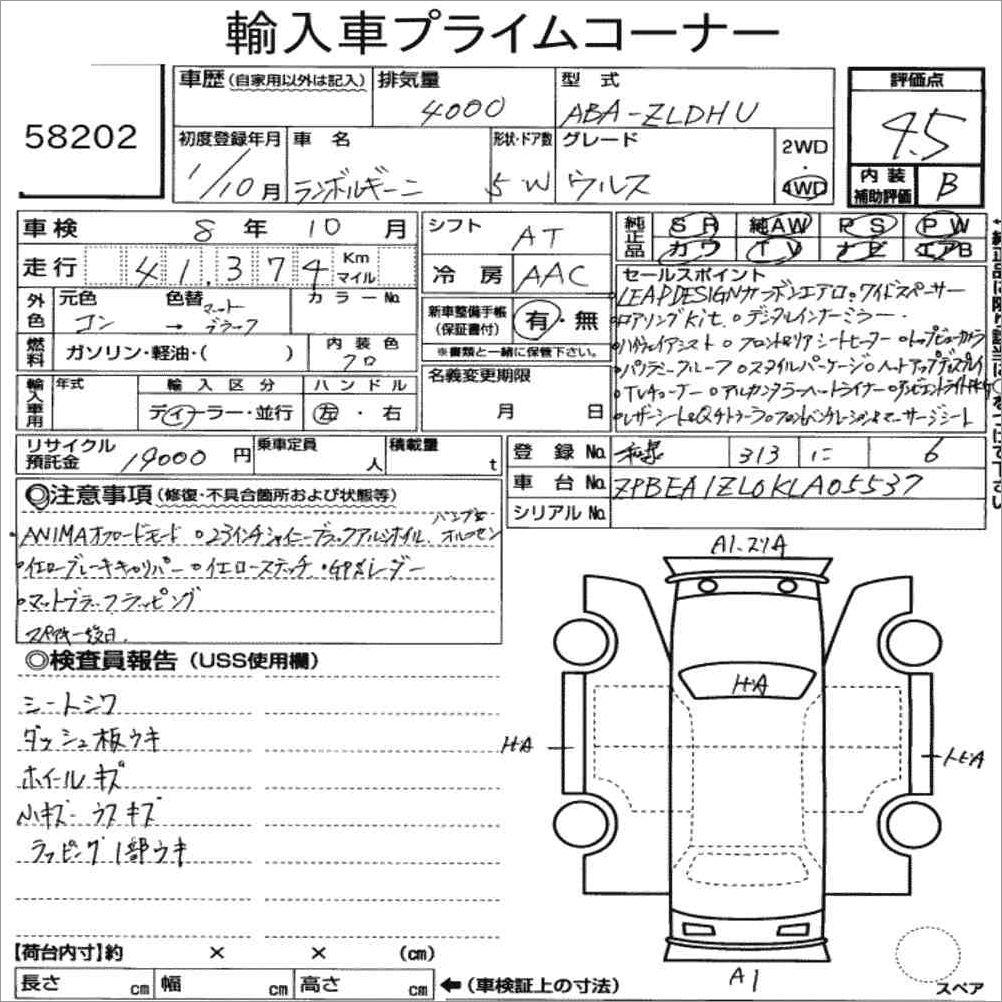 輸入車プライムコーナー
58202
車歴(自家用以外は記入)
排気量
4000
型式
ABA-ZLDHU
評価点
4.5
初度登録年月
1/10月
車名
ランボルギーニ
形状・ドア数
5 W
グレード
ウルス
2WD
4WD
内装
補助評価
B
車検 8年 10月
シフト
AT
純正品
SR 純AW PS PW
カワ TV ナビ エアB
走行 41.374 Km マイル
冷房 AAC
セールスポイント
LEAP DESIGNカーボンエアロ。ワイドスペーサー
ロアリングKit。デジタルインナーミラー
ハイウェイアシスト フロント&リアシートヒーター トップビューカメラ
スタイルパッケージ ヘッドアップディスプレイ
TVチューナー アルカンターラヘッドライナー
外色
元色
コン
色替
→
マット
ブラック
カラーNo.
新車整備手帳
(保証書付)
有・無
※書類と一緒に保管下さい。
燃料
ガソリン・軽油・( )
内装色
クロ
輸入車用
年式
輸入区分
ディーラー・並行
ハンドル
左・右
名義変更期限
月 日
リサイクル
預託金
19000円
乗車定員
人
積載量
t
登録No.
313 に 6
車台No.
ZPBEA1ZL0KLA05537
シリアルNo.
◎注意事項(修復・不具合箇所および状態等)
ANIMAオフロードモード 23インチシャイニーブラックアルミホイル
イエローブレーキキャリパー イエローステッチ GPSレーダー
マットブラックラッピング
スペアキー後日
◎検査員報告(USS使用欄)
シートシワ
ダッシュ板ウキ
ホイールキズ
小キズ ウスキズ
ラッピング1部ウキ
A1.スリA
HA
HA
トビA
A1
スペア
【荷台内寸】約 × × (cm)
長さ cm 幅 cm 高さ cm ←(車検証上の寸法)